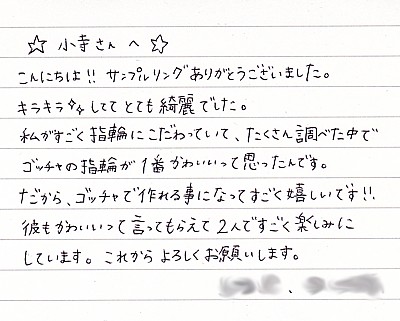 ☆ 小寺さんへ ☆
こんにちは!! サンプルリングありがとうございました。
キラキラ✨してとても綺麗でした。
私がすごく指輪にこだわっていて、たくさん調べた中で
ゴッチャの指輪が1番かわいいって思ったんです。
だから、ゴッチャで作れる事になってすごく嬉しいです!!
彼もかわいいって言ってもらえて2人ですごく楽しみに
しています。これからよろしくお願いします。